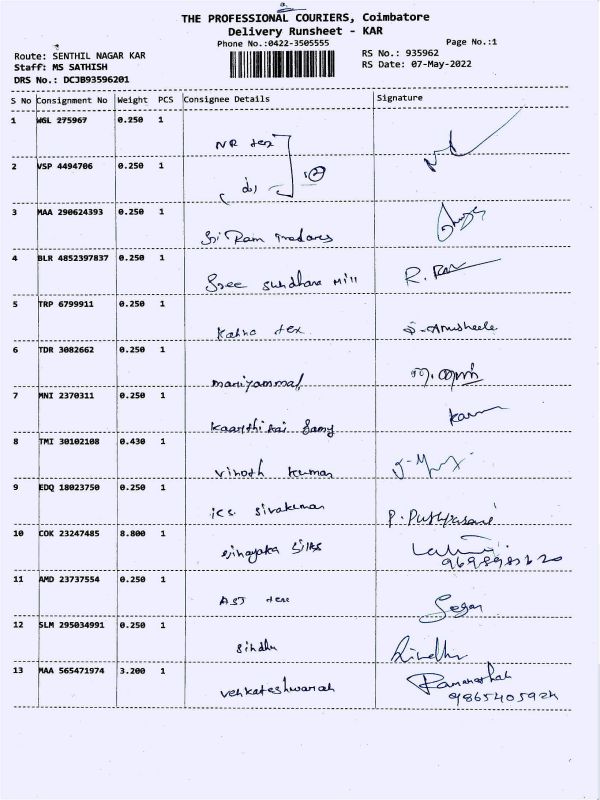 THE PROFESSIONAL COURIERS, Coimbatore
Delivery Runsheet - KAR
Phone No.:0422-3505555
Page No.:1
Route: SENTHIL NAGAR KAR
Staff: MS SATHISH
DRS No.: DCJB93596201
RS No.: 935962
RS Date: 07-May-2022
S No Consignment No Weight PCS Consignee Details Signature
1 WGL 275967 0.250 1
NR tex
2 VSP 4494706 0.250 1
(do) 2
3 MAA 290624393 0.250 1
Sri Ram traders
4 BLR 4852397837 0.250 1
Sree Sundhara Mill R. Ram
5 TRP 6799911 0.250 1
tex
6 TDR 3082662 0.250 1
mariyammal
7 MNI 2370311 0.250 1
8 TMI 30102108 0.430 1
Vinoth kumar
9 EDQ 18023750 0.250 1
K.S. Sivakumar
10 COK 23247485 8.800 1
Vinayaka Silks
11 AMD 23737554 0.250 1
AST
12 SLM 295034991 0.250 1
Sindhu Sindhu
13 MAA 565471974 3.200 1
Venkateshwarah
9865405924